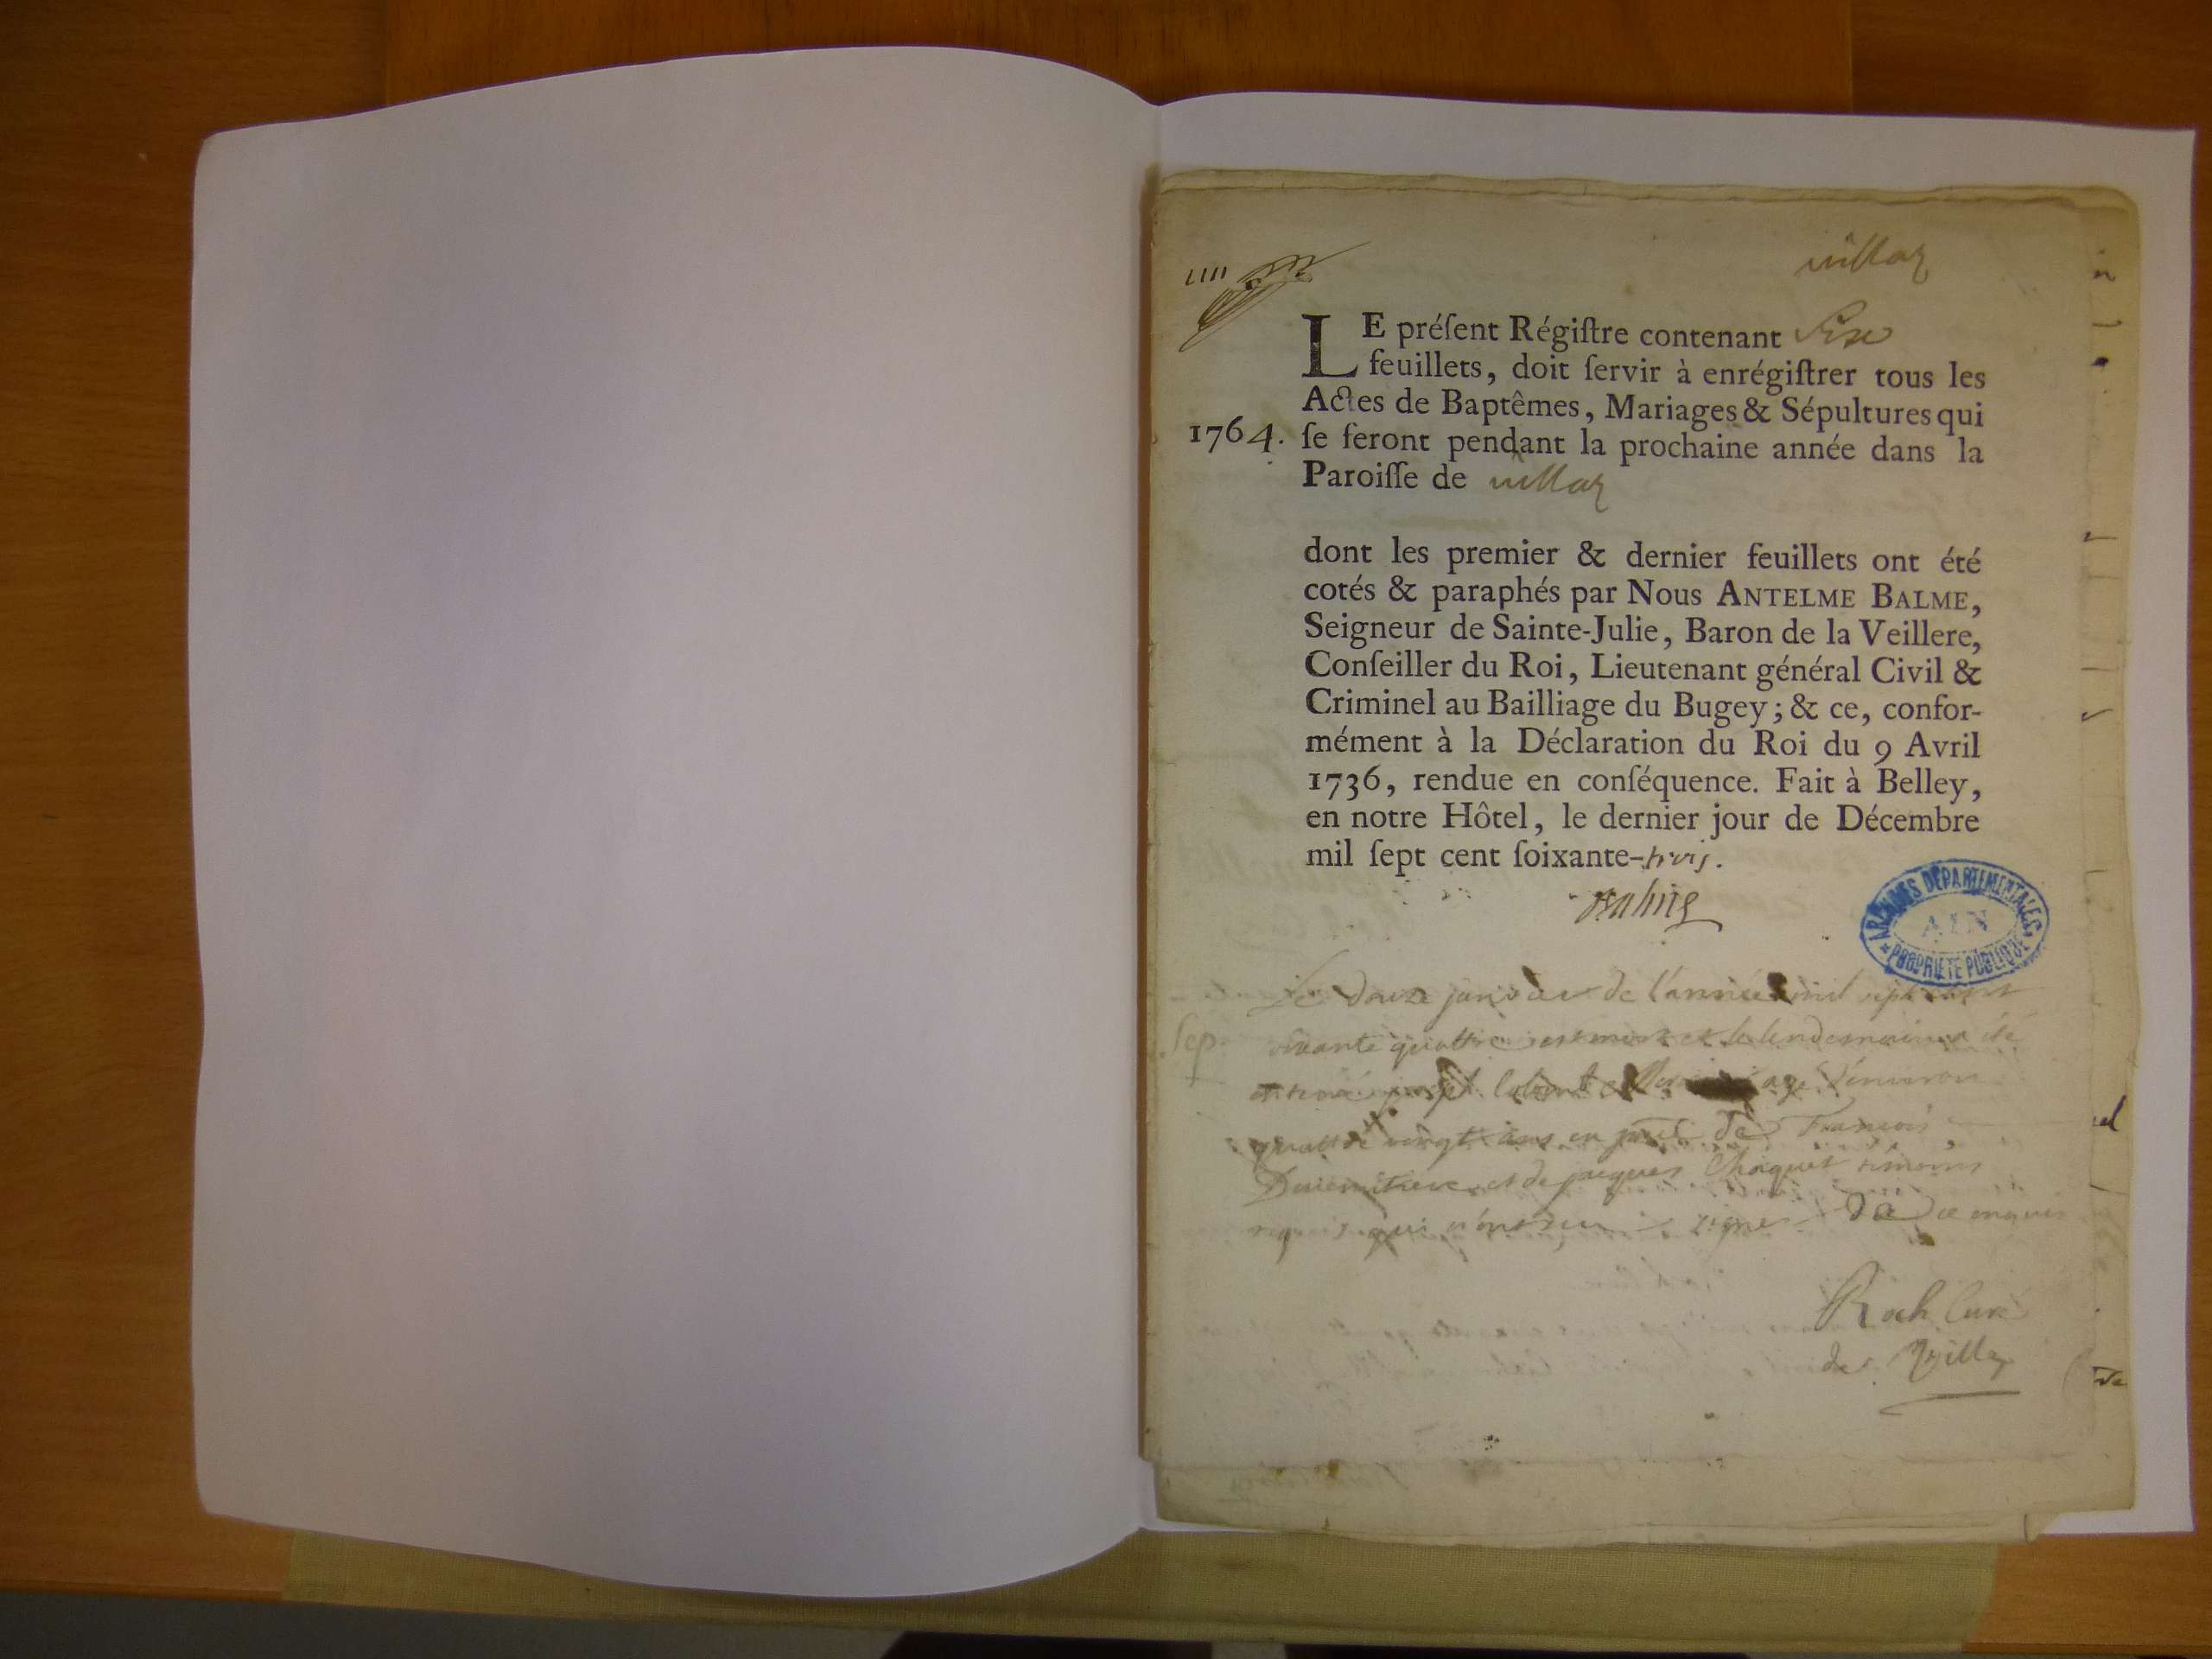 villaz
LE préſent Régiſtre contenant Six
feuillets, doit ſervir à enrégiſtrer tous les
Actes de Baptêmes, Mariages & Sépultures qui
1764. ſe feront pendant la prochaine année dans la
Paroiſſe de villaz
dont les premier & dernier feuillets ont été
cotés & paraphés par Nous ANTELME BALME,
Seigneur de Sainte-Julie, Baron de la Veillere,
Conſeiller du Roi, Lieutenant général Civil &
Criminel au Bailliage du Bugey ; & ce, confor-
mément à la Déclaration du Roi du 9 Avril
1736, rendue en conſéquence. Fait à Belley,
en notre Hôtel, le dernier jour de Décembre
mil ſept cent ſoixante-trois.
ARCHIVES DÉPARTEMENTALES
AIN
* PROPRIÉTÉ PUBLIQUE *
Le douze janvier de l'année mil sept cent
Sep. soixante quattre est mort et le lendemain a été
enterré joseph age d'environ
quattre vingt ans en de François
et de jacques Choquet témoins
requis qui n'ont signer de ce enquis
Roch Curé
de